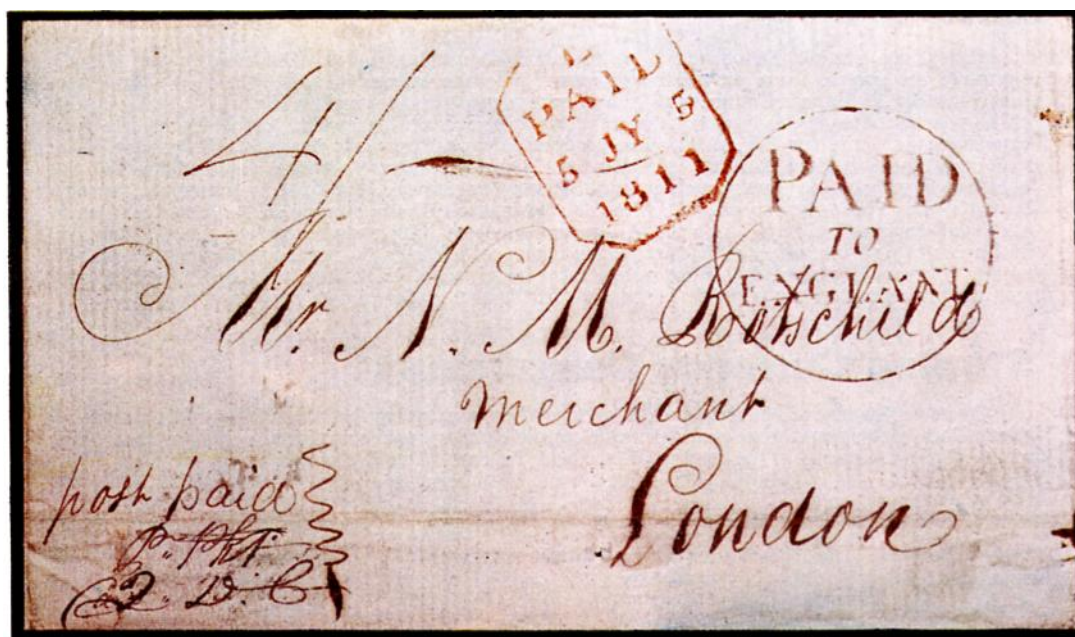 4/
PAID
5 JY 5
1811
PAID
TO
ENGLAND
Mr. N. M. Rotschild
merchant
London
post paid